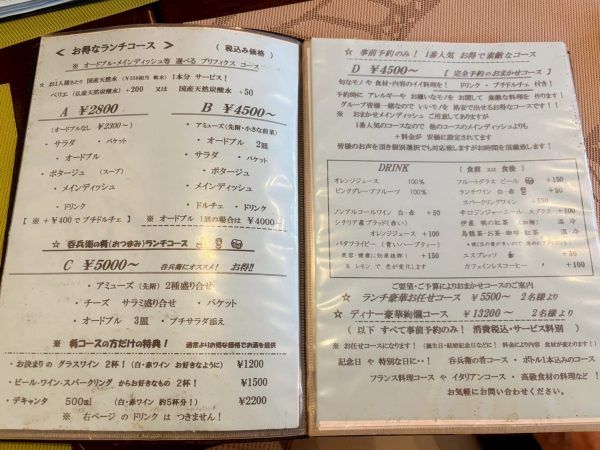 < お得なランチコース > ( 税込み価格 )
※ オードブル・メインディッシュ等 選べる プリフィクス コース
☆ お1人様あたり 国産天然水 (￥550相当 軟水) 1本分 サービス!
ペリエ (仏産天然炭酸水) +200 又は 国産天然炭酸水 +50
A ￥2800
(オードブルなし ￥2300~)
・ サラダ
・ バケット
・ オードブル
・ ポタージュ (スープ)
・ メインディッシュ
・ ドリンク
【 ※ +￥400でプチドルチェ 】
B ￥4500~
・ アミューズ (先附・小さな前菜)
・ オードブル 2皿
・ サラダ ・ バケット
・ ポタージュ
・ メインディッシュ
・ ドルチェ ・ ドリンク
※ オードブル 1皿の場合は ￥4000~
☆ 呑兵衛の肴(おつまみ)ランチコース
C ￥5000~ 呑兵衛にオススメ! お得!!
・ アミューズ (先附) 2種盛合せ
・ チーズ サラミ盛り合せ ・ バケット
・ オードブル 3皿 ・ プチサラダ添え
※ 肴コースの方だけの特典! 通常よりお得な価格でお酒を提供
・お決まりの グラスワイン 2杯! (白・赤ワイン お好きなように) ￥1200
・ビール・ワイン・スパークリング からお好きなもの 2杯! ￥1500
・デキャンタ 500㎖ (白・赤ワイン 約5杯分!) ￥2200
※ 右ページ の ドリンク は つきません!
☆ 事前予約のみ! 1番人気 お得で素敵なコース
D ￥4500~ 【 完全予約のおまかせコース 】
旬なモノや 食材・内容のイイ料理を! ドリンク・プチドルチェ付き!
予約時に アレルギーや お嫌いなモノを お聞して 素敵な料理を 作ります!
グループ皆様一緒なので いいモノを 格安で出せるお得なコースです!!
※ おまかせメインディッシュ ご用意してありますが
1番人気のコースなので 他のコースのメインディッシュよりも
+料金が 安価に設定されてます
皆様のお声を頂き個別選択でも対応致しますがお時間を頂戴致します!
DRINK ( 食前 又は 食後 )
オレンジジュース 100%
ピンクグレープフルーツ 100%
ノンアルコールワイン 白・赤 +50
シチリア産ブラッド(赤い)
オレンジジュース +100
バタフライピー (青いハーブティー)
美容・健康に効果抜群! +150
※ レモン で 色が変化します
フルートグラス ビール +50
ランチワイン 白・赤 +50
スパークリングワイン +150
辛口ジンジャーエール スプライト +100
伊産 桃の紅茶 (微糖) 温 冷
烏龍茶・お茶・珈琲・紅茶 温 冷
エスプレッソ +50
カフェインレスコーヒー +100
ご要望・ご予算によりおまかせコースのご案内
☆ ランチ豪華お任せコース ￥5500~ 2名様より
☆ ディナー豪華絢爛コース ￥13200~ 2名様より
( 以下 すべて事前予約のみ! 消費税込・サービス料別 )
※ お任せコースになります! (誕生日・結婚記念日などに! 料金により内容 食材が変わります!)
記念日 や 特別な日に‥! 呑兵衛の肴コース ・ ボトル1本込みのコース
フランス料理コース や イタリアンコース ・ 高級食材の料理など!
お気軽にお問い合わせください。